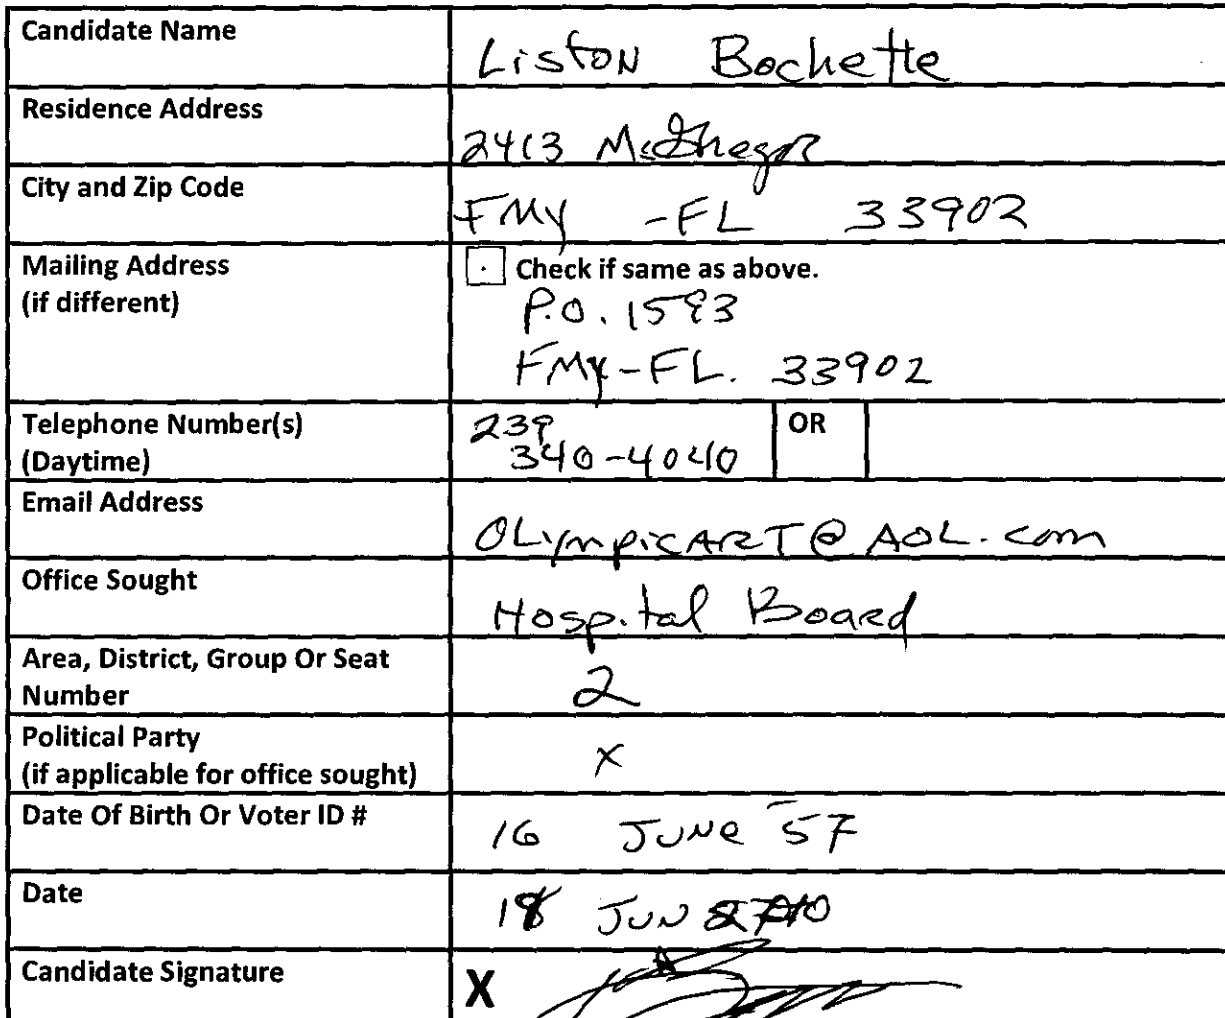 Candidate Name
Liston Bochette
Residence Address
2413 McGregor
City and Zip Code
FMY -FL 33902
Mailing Address
(if different)
Check if same as above.
P.O. 1593
FMY-FL. 33902
Telephone Number(s)
(Daytime)
239
340-4040
OR
Email Address
OLympicART@AOL.com
Office Sought
Hospital Board
Area, District, Group Or Seat
Number
2
Political Party
(if applicable for office sought)
X
Date Of Birth Or Voter ID #
16 June 57
Date
JUN
Candidate Signature
X